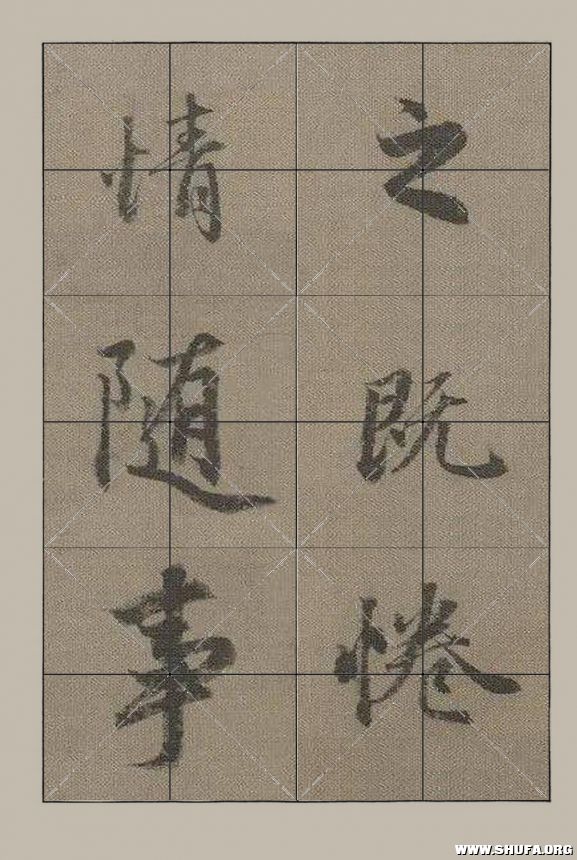 之既惓
情随事
WWW.SHUFA.ORG